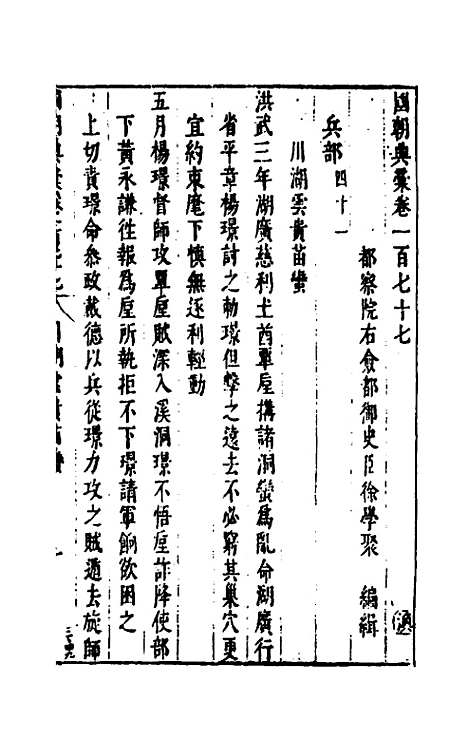 國朝典彙卷一百七十七
都察院右僉都御史臣徐學聚 編緝
兵部 四十一
川湖雲貴苗蠻
洪武三年湖廣慈利土酋覃垕搆諸洞蠻爲亂命湖廣行
省平章楊璟討之勑璟但擊之遠去不必窮其巢穴更
宜約束麾下慎無逐利輕動
五月楊璟督師攻覃垕賊深入溪洞璟不悟垕詐降使部
下黃永謙徃報爲垕所執拒不下璟請軍餉欲困之
上切責璟命叅政戴德以兵從璟力攻之賊遁去旋師